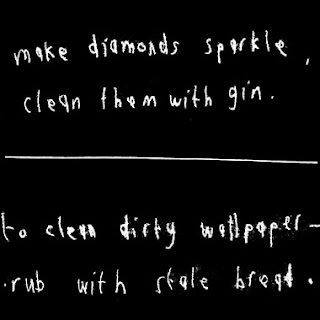 make diamonds sparkle,
clean them with gin.
to clean dirty wallpaper-
.rub with stale bread.